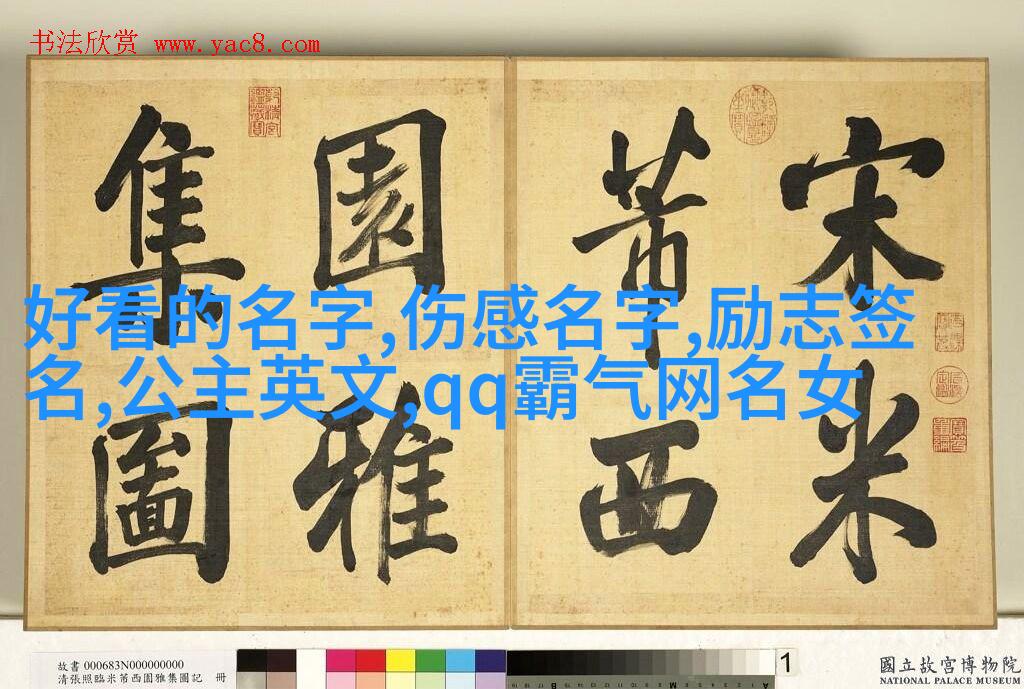 书法欣赏 www.yac8.com
宋米
芾西
園雅
集圖
好看的名字,伤感名字,励志签
名,公主英文,qq霸气网名女
故書 000683N000000000
清張照臨米芾西園雅集圖記 冊
1
國立故宮博物院
NATIONAL PALACE MUSEUM